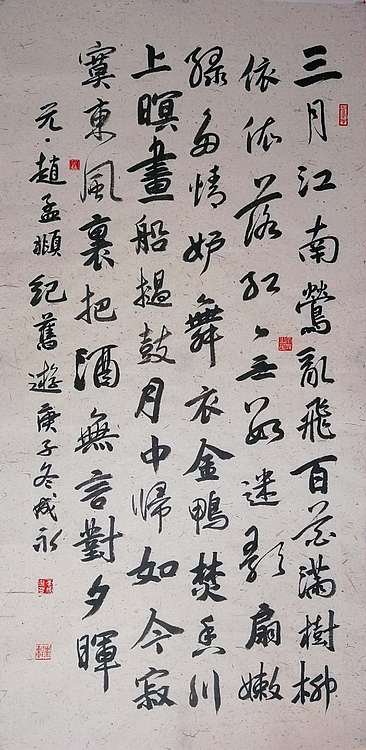 三月江南鶯亂飛百花滿樹柳
依依落紅無數迷歌扇嫩
綠多情妒舞衣金鴨焚香川
上暝畫船撾鼓月中歸如今寂
寞東風裏把酒無言對夕暉
元·趙孟頫紀舊遊庚子冬成永